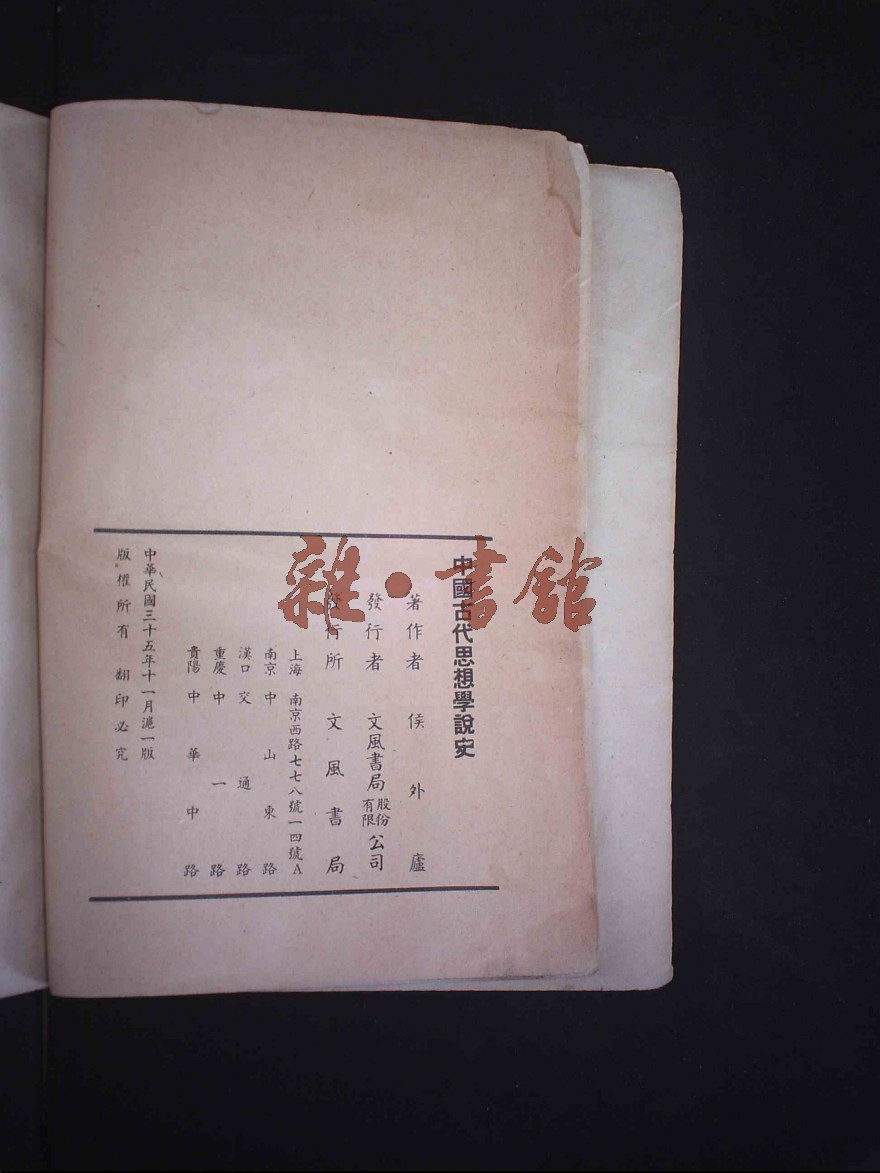 中國古代思想學說史
著作者 侯外廬
發行者 文風書局股份有限公司
發行所 文風書局
上海 南京西路七七八號一四號A
南京 中山東路
漢口 交通路
重慶 中一路
貴陽 中華中路
中華民國三十五年十一月滬一版
版權所有 翻印必究
雜·書館